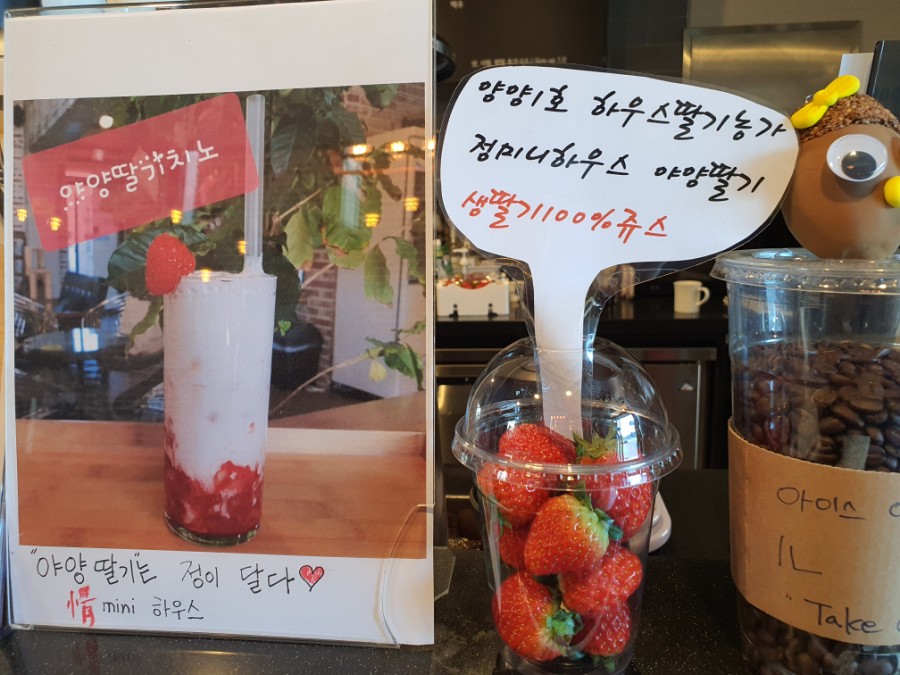 양양딸기치노
"야양딸기"는 정이 달다♥
情 mini 하우스
양양1호 하우스딸기농가
정미니하우스 야양딸기
생딸기100%쥬스
아이스
1L
"Take